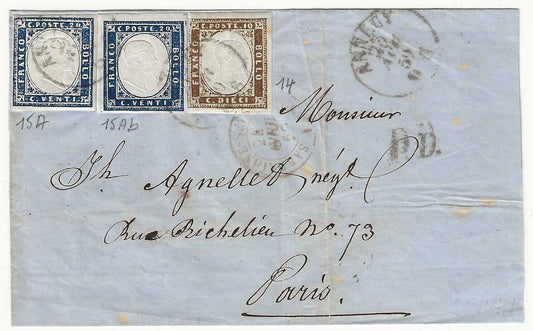 C. POSTE. 20
FRANCO
BOLLO
C. VENTI
C. POSTE. 20
FRANCO
BOLLO
C. VENTI
C. POSTE. 10
FRANCO
BOLLO
C. DIECI
ANNECY
15A
15Ab
14
Monsieur
P.D.
Jh. Agnellet négt.
Rue Richelieu No. 73
Paris.